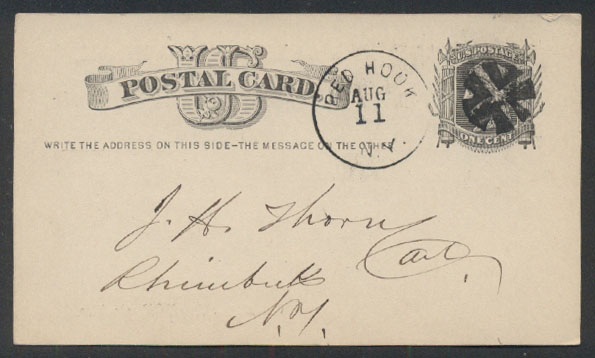 US
POSTAL CARD
WRITE THE ADDRESS ON THIS SIDE-THE MESSAGE ON THE OTHER
RED HOOK
AUG
11
N.Y.
U.S. POSTAGE
ONE CENT
J. H. Thorn
Rhinebeck
N.Y.